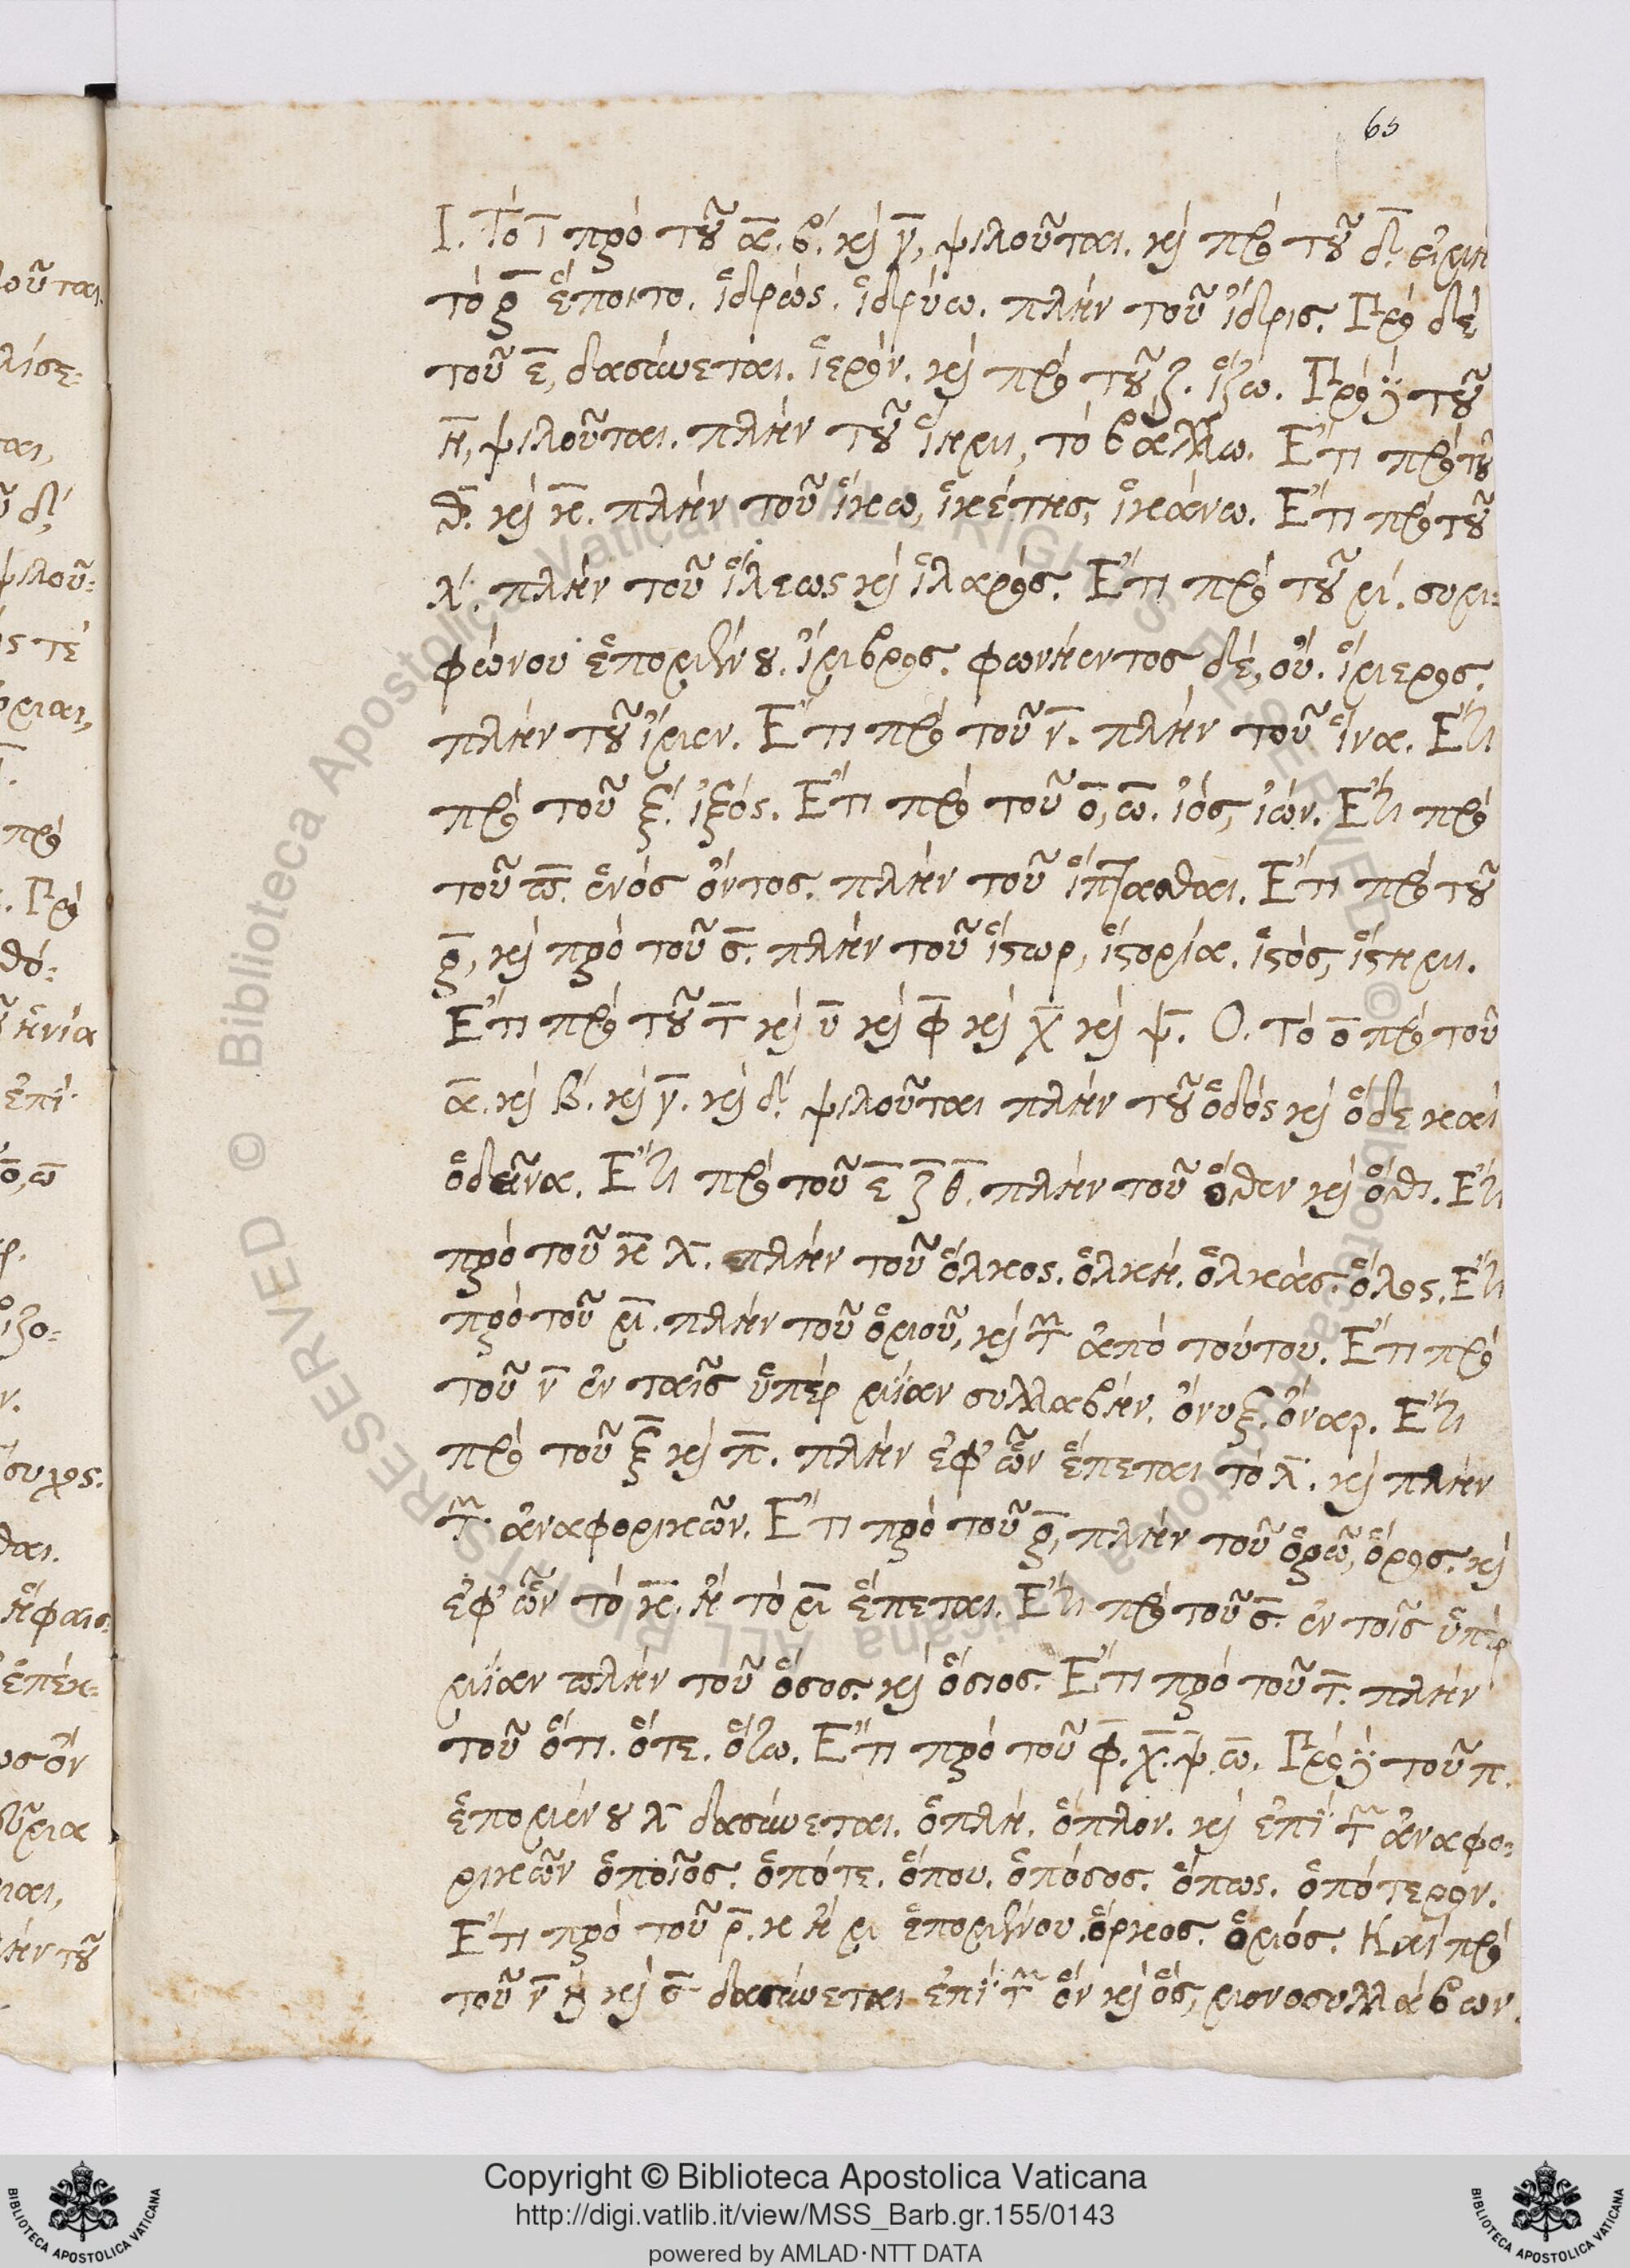 65
Ι. Τὸ ῑ πρὸ τοῦ ᾱ. β. καὶ γ̄, ψιλοῦται. καὶ πρὸ τοῦ δ. εἰ μὴ
τὸ ρ̄ ἕποιτο. ἱδρώς. ἱδρύω. πλὴν τοῦ ἴδρις. Πρὸ δὲ
τοῦ ε̄, δασύνεται. ἱερόν. καὶ πρὸ τοῦ ζ. ἵζω. Πρὸ δὲ τοῦ
η̄, ψιλοῦται. πλὴν τοῦ ἵημι, τὸ βάλλω. Ἔτι πρὸ τοῦ
θ̄. καὶ κ̄. πλὴν τοῦ ἵκω, ἱκέτης, ἱκάνω. Ἔτι πρὸ τοῦ
λ. πλὴν τοῦ ἵλεως καὶ ἱλαρός. Ἔτι πρὸ τοῦ μ. συμ=
φώνου ἑπομένου. ἴμβρος. φωνήεντος δὲ, οὔ. ἵμερος.
πλὴν τοῦ ἴμεν. Ἔτι πρὸ τοῦ ν̄. πλὴν τοῦ ἵνα. Ἔτι
πρὸ τοῦ ξ. ἰξός. Ἔτι πρὸ τοῦ ο̄, ω̄. ἰός, ἰών. Ἔτι πρὸ
τοῦ π̄. ἑνὸς ὄντος. πλὴν τοῦ ἵπτασθαι. Ἔτι πρὸ τοῦ
ρ̄, καὶ πρὸ τοῦ σ̄. πλὴν τοῦ ἵστωρ, ἱστορία. ἱστός, ἵστημι.
Ἔτι πρὸ τοῦ τ̄ καὶ ῡ καὶ φ̄ καὶ χ̄ καὶ ψ̄. Ο. Τὸ ο̄ πρὸ τοῦ
ᾱ. καὶ β. καὶ γ̄. καὶ δ. ψιλοῦται πλὴν τοῦ ὁδός καὶ ὅδε καὶ
ὁδεῖνα. Ἔτι πρὸ τοῦ ε̄ ζ̄ θ̄. πλὴν τοῦ ὅθεν καὶ ὅθι. Ἔτι
πρὸ τοῦ κ̄ λ̄. πλὴν τοῦ ὅλκος. ὁλκή. ὁλκάς. ὅλος. Ἔτι
πρὸ τοῦ μ̄. πλὴν τοῦ ὁμοῦ, καὶ τῶν ἀπὸ τούτου. Ἔτι πρὸ
τοῦ ν̄ ἐν ταῖς ὑπὲρ μίαν συλλαβήν. ὄνυξ. ὄναρ. Ἔτι
πρὸ τοῦ ξ̄ καὶ π̄. πλὴν ἐφ' ὧν ἕπεται τὸ λ̄. καὶ πλὴν
τῶν ἀναφορικῶν. Ἔτι πρὸ τοῦ ρ̄, πλὴν τοῦ ὁρῶ, ὅρος. καὶ
ἐφ' ὧν τὸ κ̄. ἢ τὸ μ̄ ἕπεται. Ἔτι πρὸ τοῦ σ̄. ἐν τοῖς ὑπὲρ
μίαν πλὴν τοῦ ὅσος. καὶ ὅσιος. Ἔτι πρὸ τοῦ τ̄. πλὴν
τοῦ ὅτι. ὅτε. ὅτω. Ἔτι πρὸ τοῦ φ̄. χ̄. ψ̄. ω̄. Πρὸ δὲ τοῦ π.
ἑπομένου λ̄ δασύνεται. ὁπλή. ὅπλον. καὶ ἐπὶ τῶν ἀναφο=
ρικῶν ὁποῖος. ὁπότε. ὅπου. ὁπόσος. ὅπως. ὁπότερον.
Ἔτι πρὸ τοῦ ρ̄. κ ἢ μ ἑπομένου. ὅρκος. ὅρμός. Καὶ πρὸ
τοῦ ν̄ καὶ σ̄ δασύνεται ἐπὶ τῶν ὃν καὶ ὃς, μονοσυλλάβων.
Copyright © Biblioteca Apostolica Vaticana
http://digi.vatlib.it/view/MSS_Barb.gr.155/0143
powered by AMLAD·NTT DATA